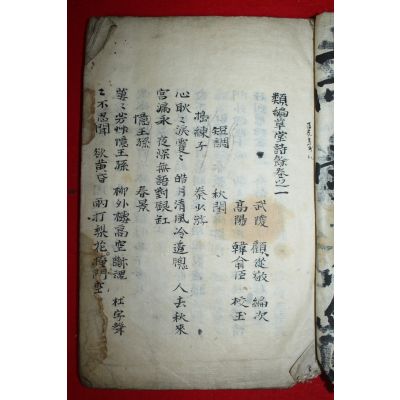 類編草堂詩餘卷之一
武陵 顧從敬 編次
高陽 韓俞臣 校正
短調 秋閨
搗練子 秦少游
心耿〻淚雙〻皓月清風冷透牕人去秋來
宮漏永夜深無語對銀釭
憶王孫 春景
萋〻芳草憶王孫柳外樓高空斷魂杜宇聲
〻不忍聞欲黃昏雨打梨花深閉門